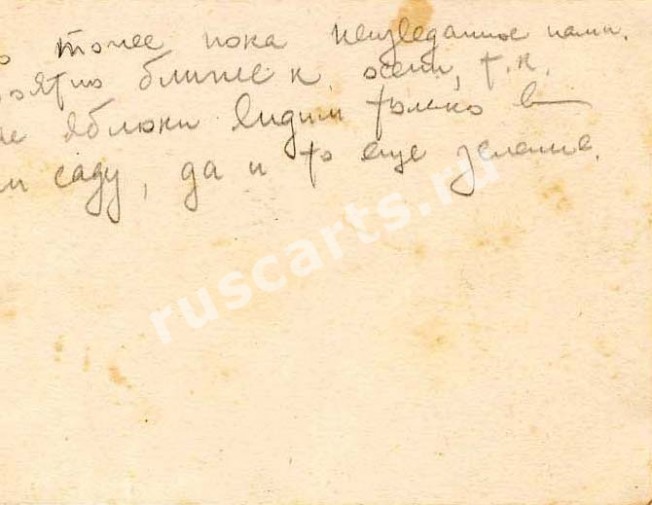 о точее пока неизведанное нами.
роятно ближе к осени, т.к.
ые яблоки видим только в
м саду, да и то еще зеленые.
ruscarts.ru